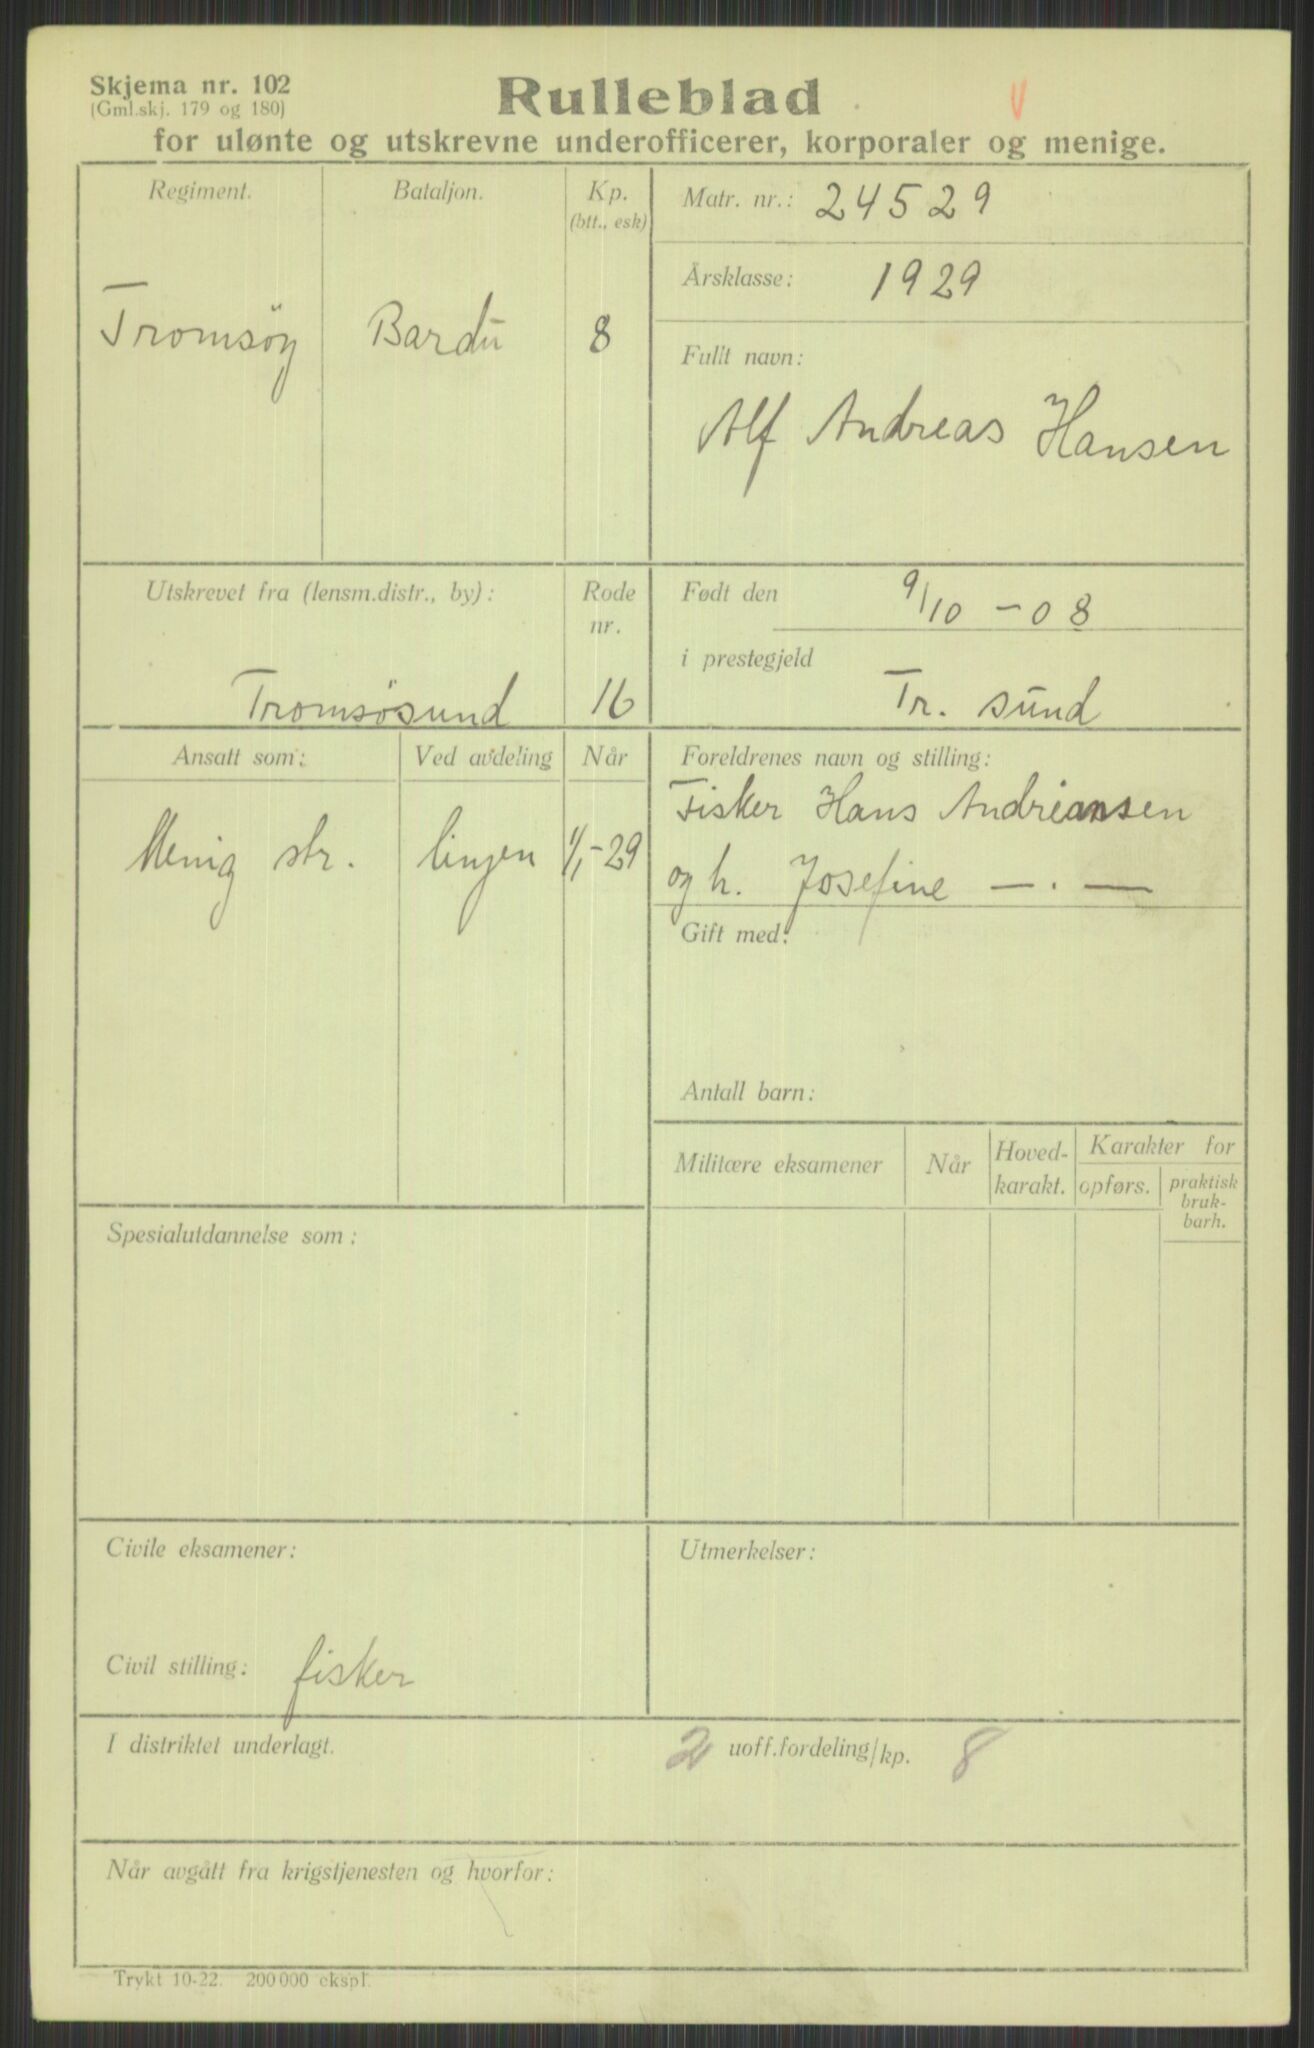 Skjema nr. 102
(Gml.skj. 179 og 180)
Rulleblad
for ulønte og utskrevne underofficerer, korporaler og menige.
Regiment.
Bataljon.
Kp.
(btt., esk)
Tromsöy
Bardu
8
Matr. nr.: 24529
Årsklasse: 1929
Fullt navn:
Alf Andreas Hansen
Utskrevet fra (lensm.distr., by):
Tromsösund
Rode
nr.
16
Født den 9/10 - 08
i prestegjeld Tr. sund
Ansatt som:
Ved avdeling
Når
Menig str.
linjen
1/1-29
Foreldrenes navn og stilling:
Fisker Hans Andreansen
og h. Josefine — . —
Gift med:
Antall barn:
Militære eksamener
Når
Hoved-
karakt.
Karakter for
opførs.
praktisk
bruk-
barh.
Spesialutdannelse som:
Civile eksamener:
Civil stilling: fisker
Utmerkelser:
I distriktet underlagt.
2 uoff.fordeling/kp. 8
Når avgått fra krigstjenesten og hvorfor:
Trykt 10-22. 200 000 ekspl.